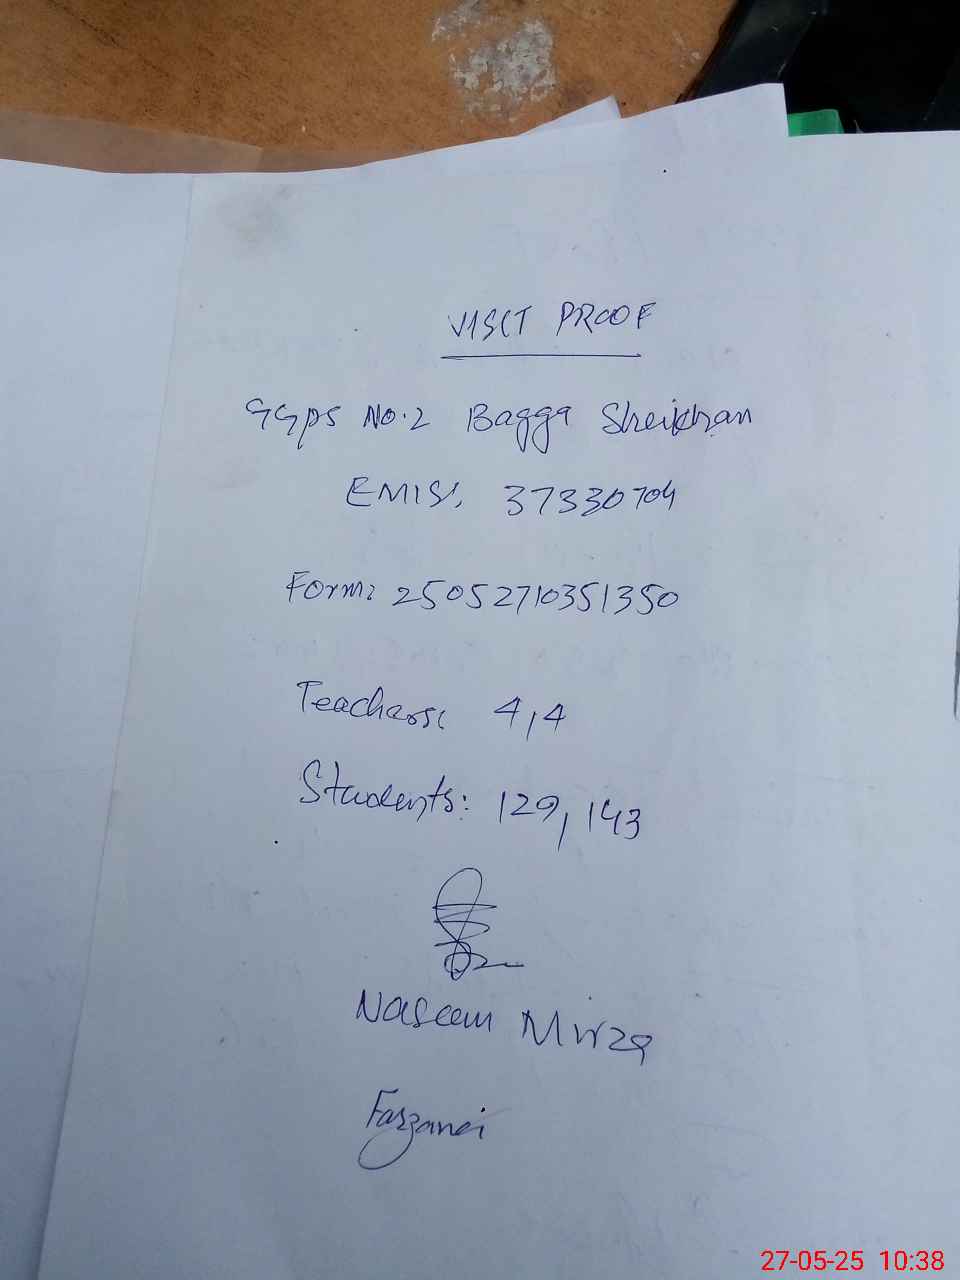 VISIT PROOF
GGPS No.2 Bagga Sheikhan
EMIS: 37330704
Form: 25052710351350
Teachers: 4,4
Students: 129, 143
Naseem Mirza
27-05-25 10:38